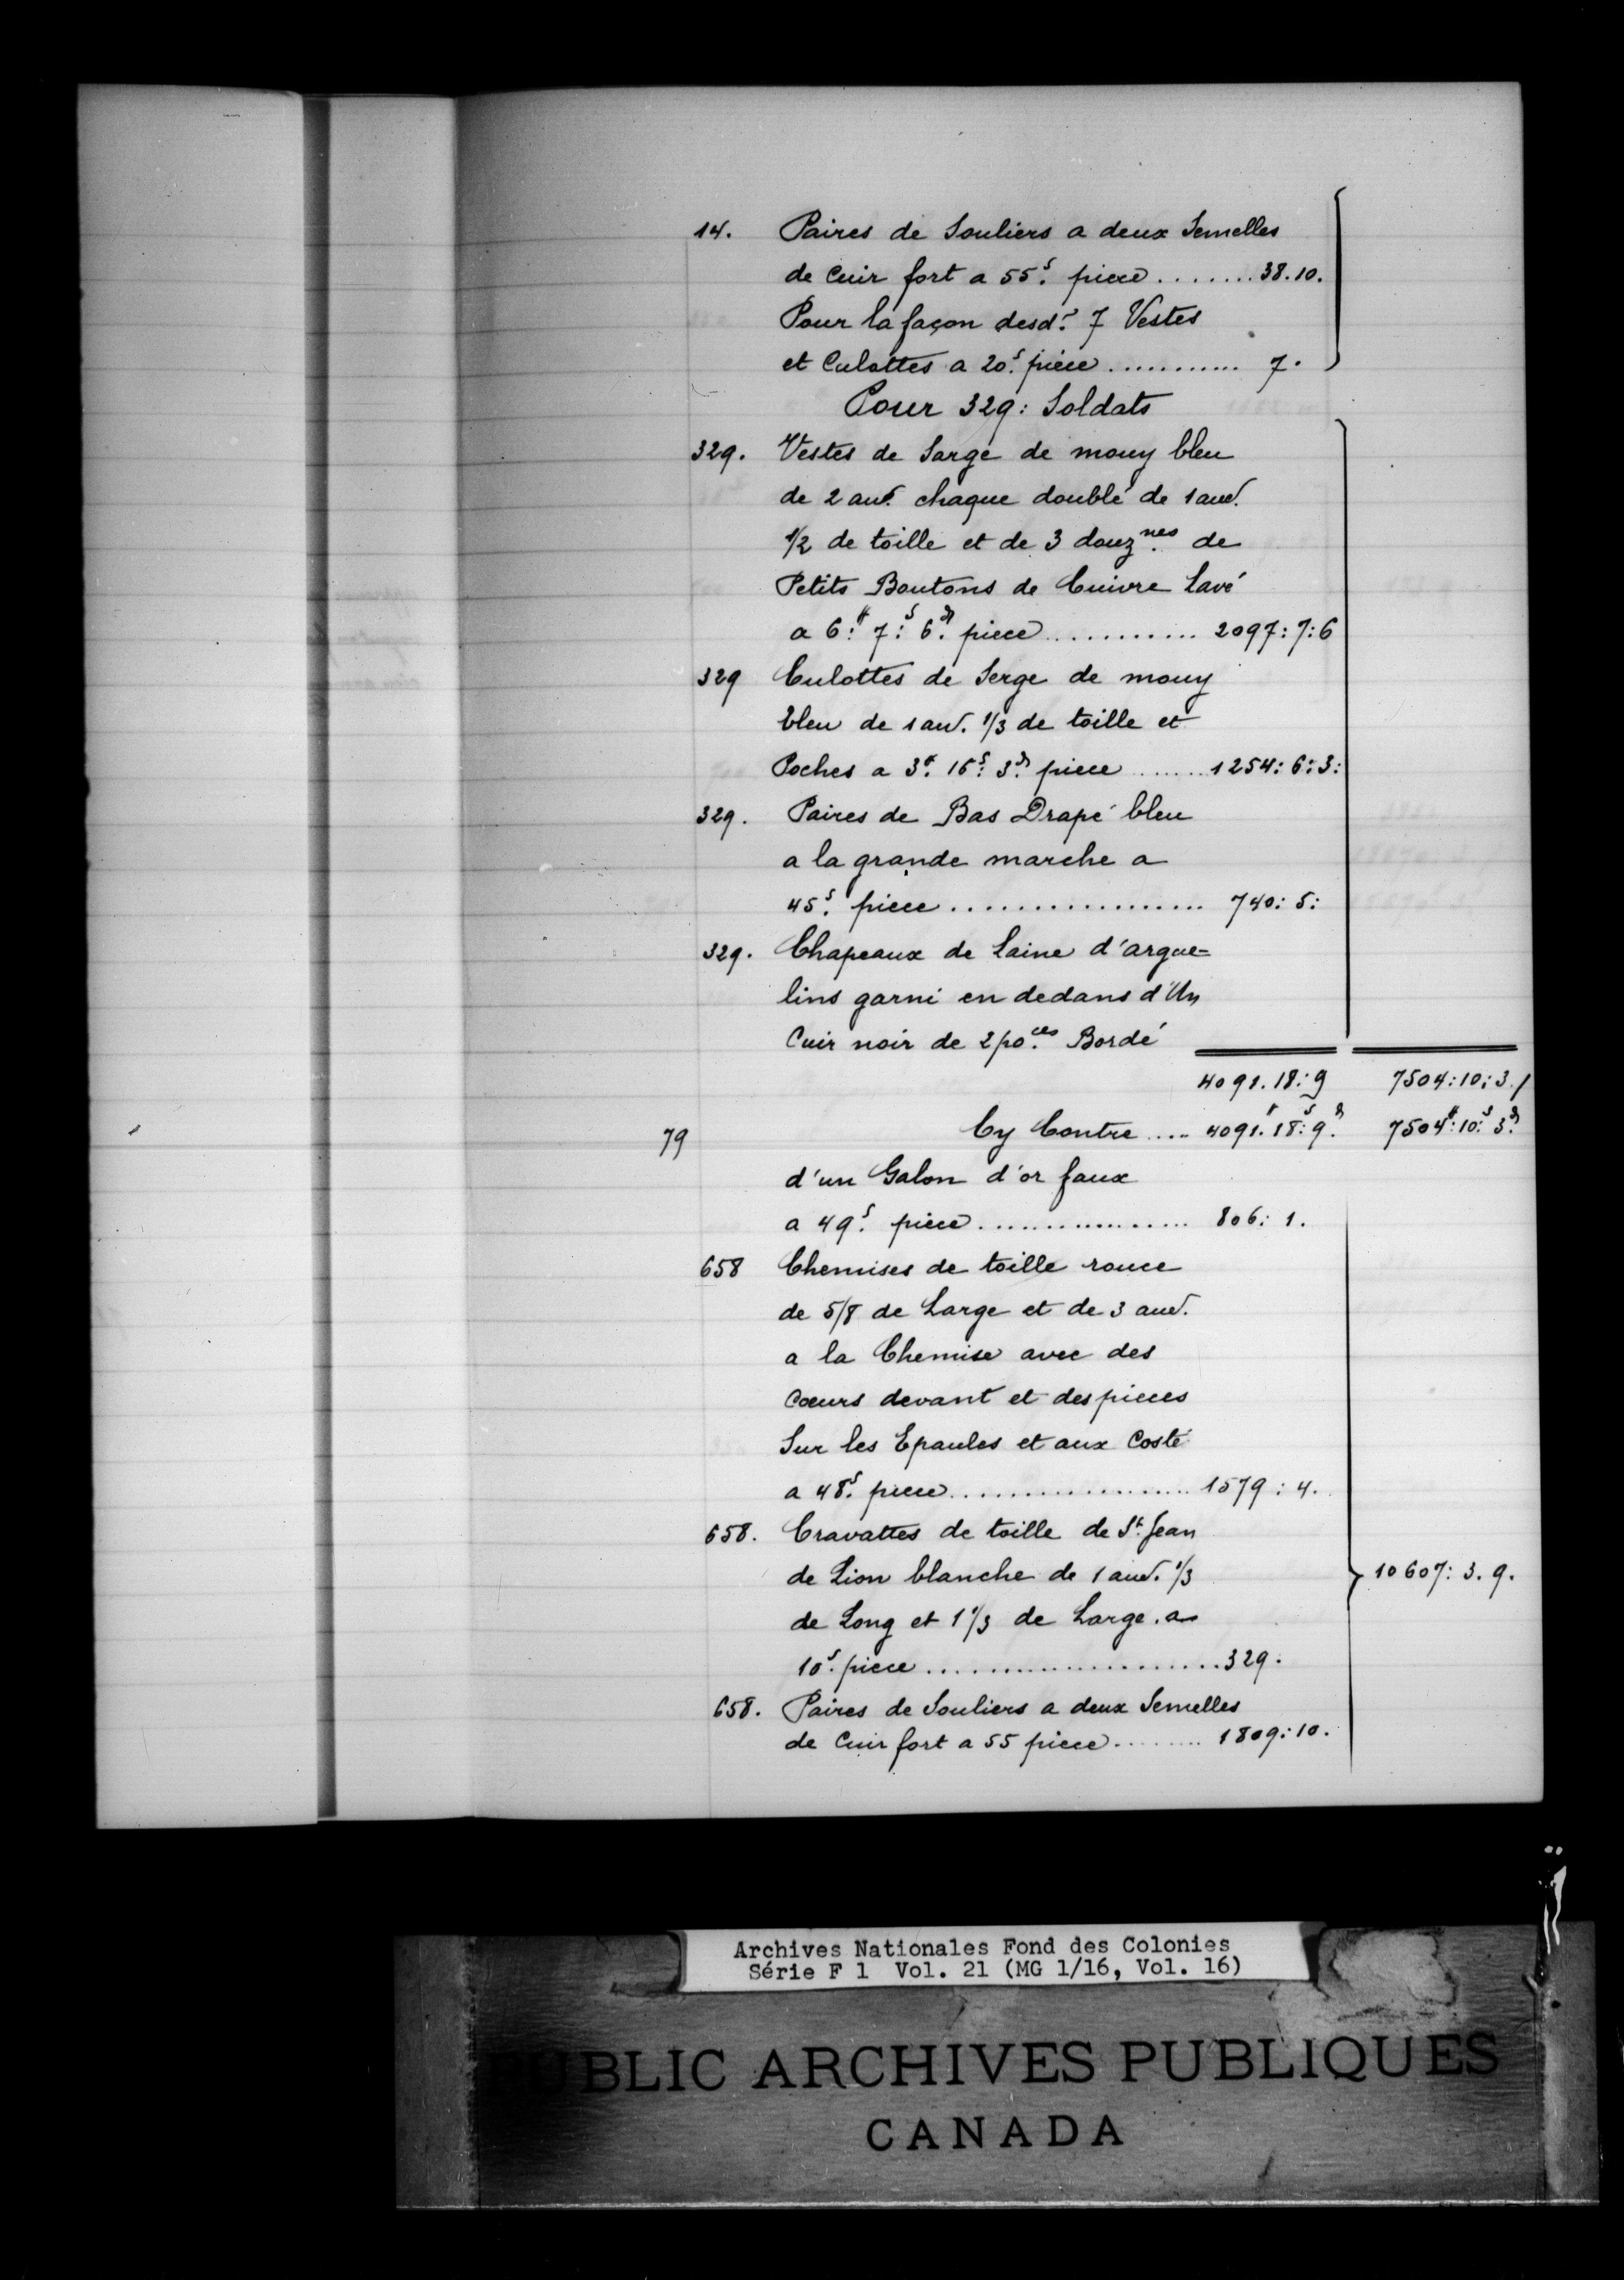 14. Paires de Souliers a deux Semelles
de Cuir fort a 55ˢ. piece ........ 38.10.
Pour la façon desd.ˢ 7 Vestes
et Culottes a 20ˢ. piece ............ 7.
Pour 329: Soldats
329. Vestes de Sarge de mouy bleu
de 2 aus. chaque doublé de 1 aus.
1/2 de toille et de 3 douz.nes de
Petits Boutons de Cuivre Lavé
a 6:# 7:ˢ 6.d piece ............ 2097:7:6
329 Culottes de Serge de mouy
bleu de 1 aus. 1/3 de toille et
Poches a 3#. 16ˢ: 3d. piece ....... 1254:6:3:
329. Paires de Bas Drapé bleu
a la grande marche a
45ˢ. piece .................. 740:5:
329. Chapeaux de Laine d'argue-
lins garni en dedans d'Un
Cuir noir de 2 po.ces Bordé
4091.18:9 7504:10:3./
79 Cy Contre .... 4091.# 18:ˢ 9.d 7504#:10:ˢ 3.d
d'un Galon d'or faux
a 49ˢ. piece ................ 806:1.
658 Chemises de toille rouce
de 5/8 de Large et de 3 aus.
a la Chemise avec des
Cœurs devant et des pieces
Sur les Epaules et aux Costé
a 48ˢ. piece .................. 1579:4.
658. Cravattes de toille de St. Jean
de Lion blanche de 1 aus. 1/3 10607:3.9.
de Long et 1 1/3 de Large. a
10ˢ. piece ...................... 329.
658. Paires de Souliers a deux Semelles
de Cuir fort a 55 piece ........ 1809:10.
Archives Nationales Fond des Colonies
Série F 1 Vol. 21 (MG 1/16, Vol. 16)
PUBLIC ARCHIVES PUBLIQUES
CANADA